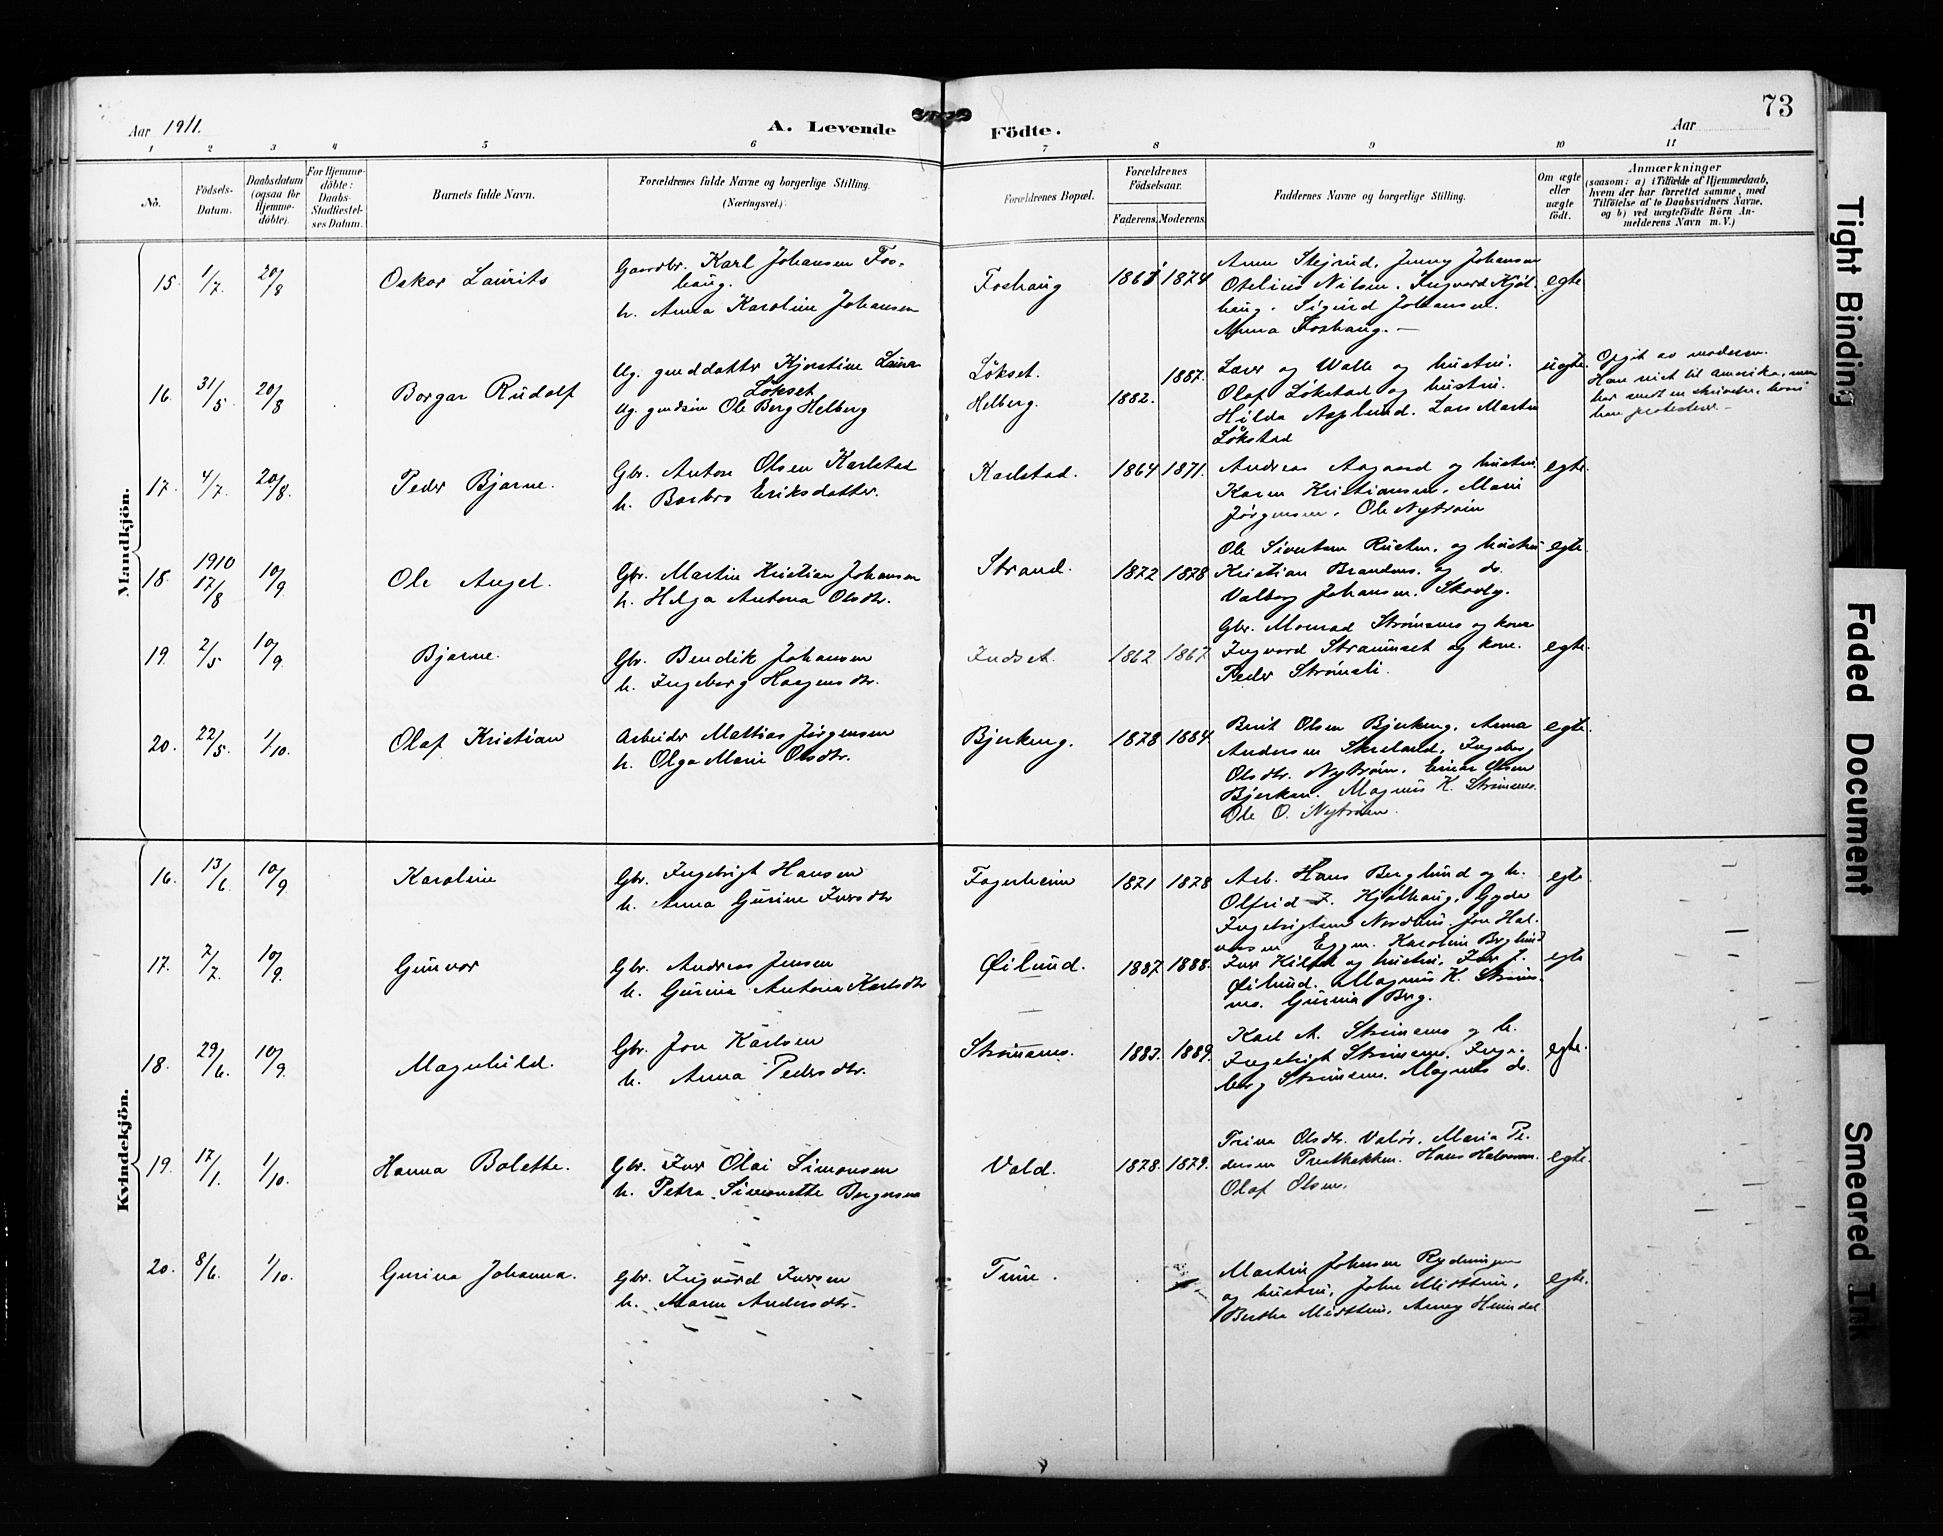 73
Aar 1911.
A. Levende Födte.
Aar
1 2 3 4 5 6 7 8 9 10 11
No.
Födsels-Datum.
Daabsdatum (ogsaa for Hjemme-döbte).
For Hjemme-döbte: Daabs-Stadfæstel-ses Datum.
Barnets fulde Navn.
Forældrenes fulde Navne og borgerlige Stilling.
(Næringsvei.)
Forældrenes Bopæl.
Forældrenes Födselsaar.
Faderens. Moderens.
Faddernes Navne og borgerlige Stilling.
Om ægte eller uægte födt.
Anmærkninger
(saasom: a) i Tilfælde af Hjemmedaab,
hvem der har forrettet samme, med
Tilföielse af to Daabsvidners Navne,
og b) ved uægtefödte Börn An-
melderens Navn m. V.)
Mandkjön.
15. 1/7. 20/8 Oskar Laurits
Gaardbr. Karl Johansen Fos-
haug.
h. Anna Karoline Johansen
Foshaug
1874
Jenny Johansen
Otelius Nilsen. Ingvard Kjöl-
haug. Sigurd Johansen.
Foshaug. –
egte
16. 31/5. 20/8 Borgar Rudolf
Ug. gmddatter Kjerstine
Løkset
Ug. gmdsøn Ole Berg Helberg
Løkset.
Helberg.
1882. 1887.
Lærer og Walle og hustru.
Olaf Løkstad og hustru.
Hilda Asplund. Lars Martin
Løkstad
uegte.
Opgit av moderen.
Han reist til Amerika, men
har sendt en skrivelse, hvori
han protesterer –
17. 4/7. 20/8. Peder Bjarne.
Gbr. Anton Olsen Karlstad
h. Barbro Eriksdatter.
Karlstad.
1864 1871.
Andreas Aagaard og hustru
Karen Kristiansen. Marie
Jørgensen. Ole Nytrøen
egte.
18. 1910 17/8 10/9. Ole Angel.
Gbr. Martin Kristian Johansen
h. Helga Antona Olsdtr.
Strand.
1872 1878
Ole Sivertsen Rusten. og hustru
Kristian Brandmo. og do.
Valborg Johansen.
egte.
19. 2/5. 10/9. Bjarne.
Gbr. Bendik Johansen
h. Ingeborg Haagensdtr.
Indset.
1862 1867
Gbr. Monrad Strømmes og kone
Ingvard og kone.
Peder Strømsli.
egte.
20. 22/5. 1/10. Olaf Kristian
Arbeider Mathias Jørgensen
h. Olga Marie Olsdtr.
Bjerkeng.
1878 1884.
Berit Olsen Bjerkeng. Anna
Andersen. Ingeborg
Olsdtr. Nytrøen. Einar Olsen
Bjerken. Magnus K. Strømmes.
Ole O. Nytrøen.
egte.
Kvindekjön.
16. 13/6. 10/9. Karoline
Gbr. Ingebrigt Hansen
h. Anna Gurine Iversdtr
Fagerheim
1871 1878
Arb. Hans Berglund og h.
Olfrid I. Hjølhaug. Gyda
Ingebrigtsen Nordmo. Jon Hal-
vorsen Eggen. Karoline Berglund
egte.
17. 2/7. 10/9. Gunvor
Gbr. Andreas Jensen
h. Gurina Antona Karlsdtr
Øilund.
1887 1888.
og hustru. Iver J.
Øilund. Magnus K. Strøm-
mes. Gurina Berg.
egte
18. 29/6. 10/9. Magnhild.
Gbr. Jon Karlsen
h. Anna Pedersdtr.
Strømmes.
1883. 1889.
Karl A. Strømmes og h.
Ingebrigt Strømmes. Inge-
borg Strømmes. Magnus do.
egte.
19. 17/1. 1/10. Hanna Bolette.
Gbr. Iver Olai Simonsen
h. Petra Simonette Bergersen
Vold.
1878. 1879.
Trina Olsdtr. Valør. Maria Pe-
dersen Prestbakken. Hans Halvorsen.
Olaf Olsen.
egte.
20. 8/6. 1/10. Gurina Johanna.
Gbr. Ingvard Iversen
h. Maren Andersdtr.
Martin Johnsen Rydningen
og hustru. John Midttun.
Bertha Midttun.
egte.
Tight Binding
Faded Document
Smeared Ink